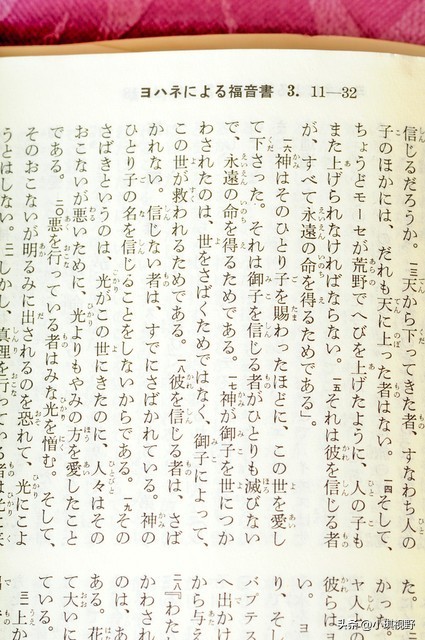 ヨハネによる福音書 3. 11—32
信じるだろうか。一三天から下ってきた者、すなわち人の
子のほかには、だれも天に上った者はない。一四そして、
ちょうどモーセが荒野でへびを上げたように、人の子も
また上げられなければならない。一五それは彼を信じる者
が、すべて永遠の命を得るためである」。
一六神はそのひとり子を賜わったほどに、この世を愛し
て下さった。それは御子を信じる者がひとりも滅びない
で、永遠の命を得るためである。一七神が御子を世につか
わされたのは、世をさばくためではなく、御子によって、
この世が救われるためである。一八彼を信じる者は、さば
かれない。信じない者は、すでにさばかれている。神の
ひとり子の名を信じることをしないからである。一九その
さばきというのは、光がこの世にきたのに、人々はその
おこないが悪いために、光よりもやみの方を愛したこと
である。二〇悪を行っている者はみな光を憎む。そして、
そのおこないが明るみに出されるのを恐れて、光にこよ
うとはしない。二一しかし、真理を行っている者は光に
た。
かった。
ヤ人の
彼らは
い。ヨ
り、そし
バプテス
へ出かけ
から与え
二八『わた
かわされ
のは、あ
ある。花
て大いに
ている。
三一上か
头条@小琪视野